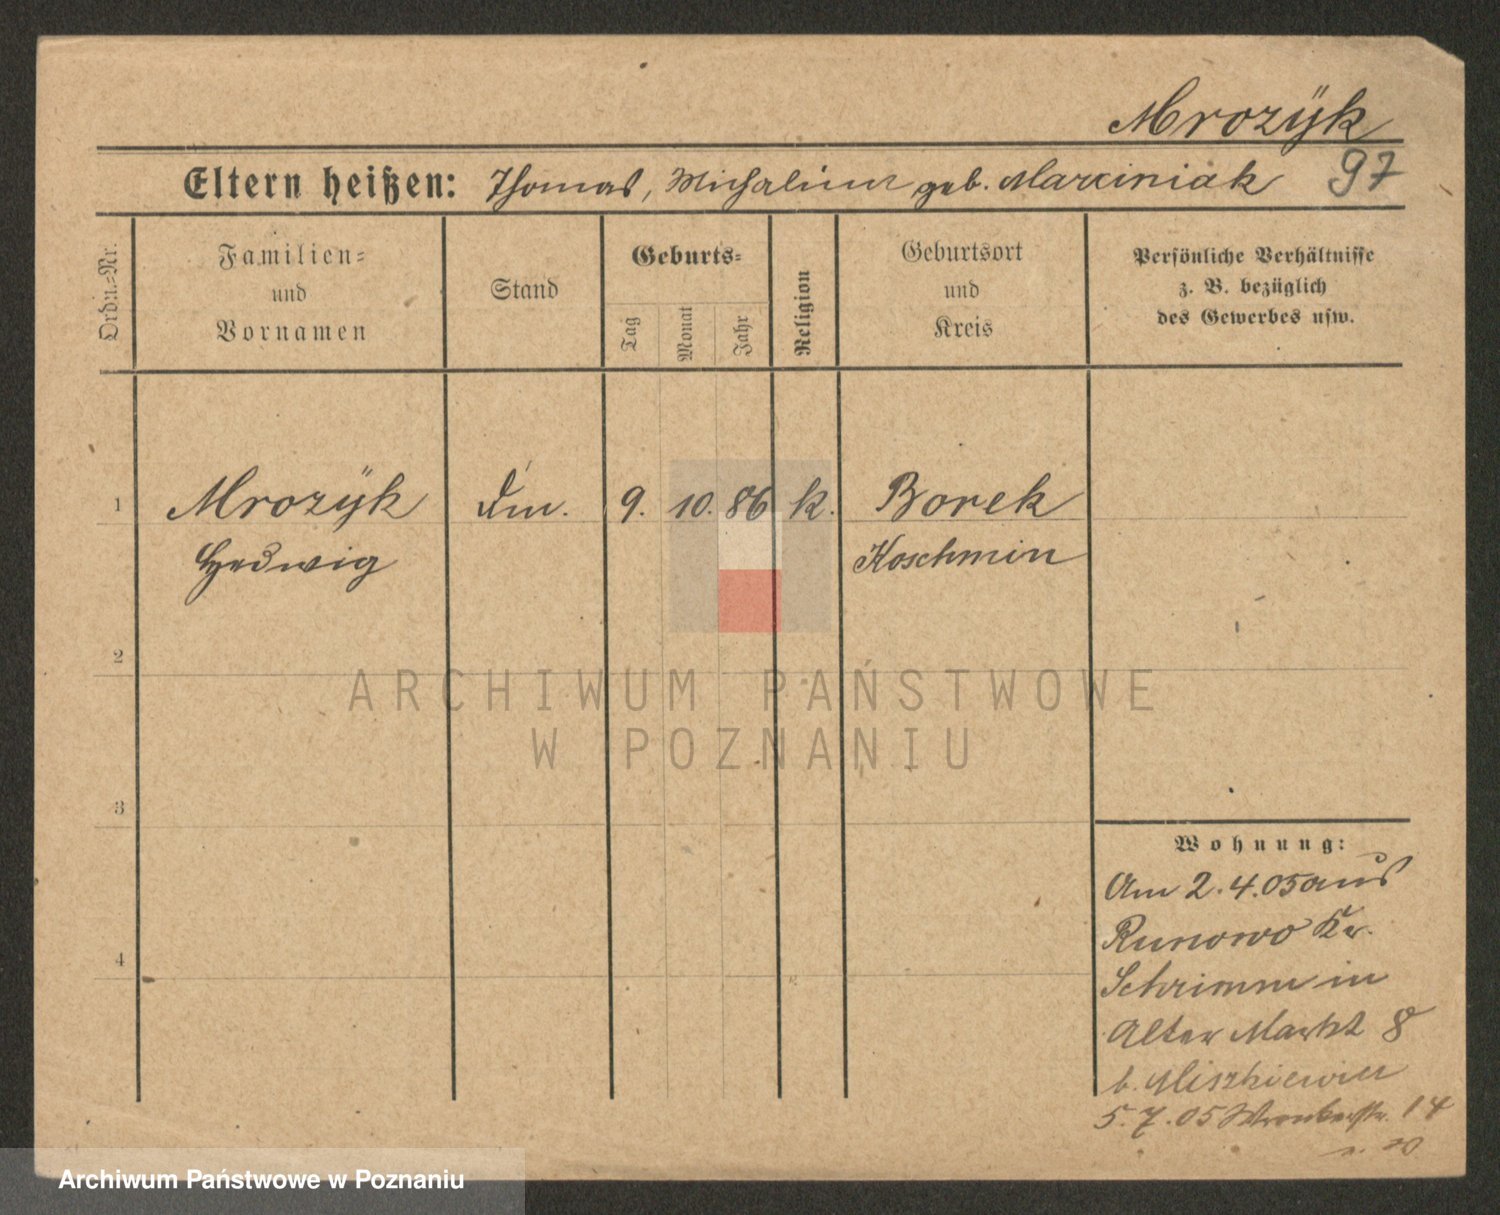 Mrozÿk
97
Eltern heißen: Thomas, Michalina geb. Marciniak
Ordn.-Nr.
Familien-
und
Vornamen
Stand
Geburts-
Tag
Monat
Jahr
Religion
Geburtsort
und
Kreis
Persönliche Verhältnisse
z. B. bezüglich
des Gewerbes usw.
1 Mrozÿk 9. 10. 86 k. Borek
Hedwig Koschmin
2
3
4
Wohnung:
Am 2.4.05 aus
Runowo Kr.
Schrimm in
Alter Markt 8
b. Miszkiewicz
5.7.05 Wronkerstr. 14
ARCHIWUM PAŃSTWOWE
W POZNANIU
Archiwum Państwowe w Poznaniu